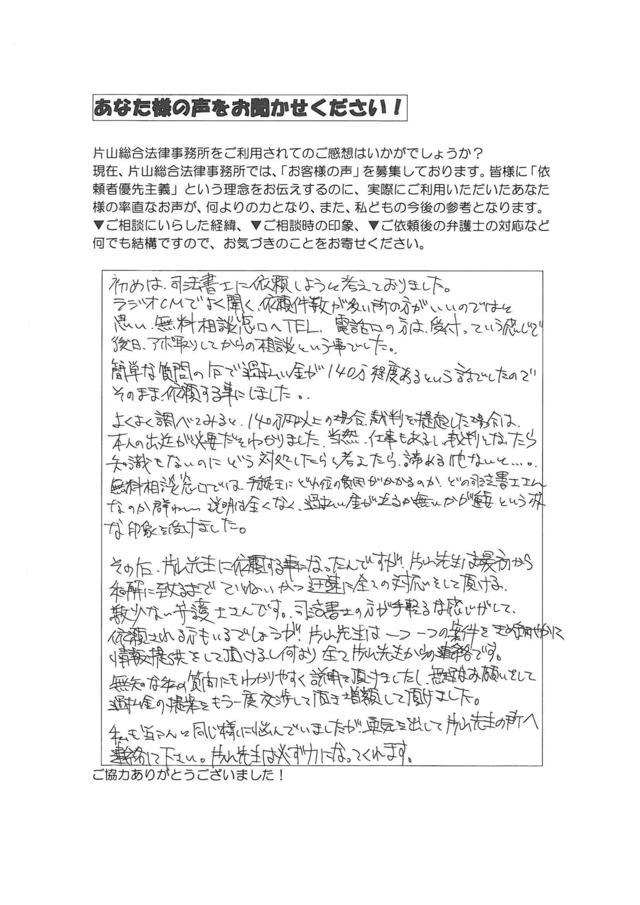 あなた様の声をお聞かせください！
片山総合法律事務所をご利用されてのご感想はいかがでしょうか？
現在、片山総合法律事務所では、「お客様の声」を募集しております。皆様に「依
頼者優先主義」という理念をお伝えするのに、実際にご利用いただいたあなた
様の率直なお声が、何よりの力となり、また、私どもの今後の参考となります。
▼ご相談にいらした経緯、▼ご相談時の印象、▼ご依頼後の弁護士の対応など
何でも結構ですので、お気づきのことをお寄せください。
初めは、司法書士に依頼しようと考えておりました。
ラジオCMでよく聞く、依頼件数が多い所の方がいいのではと
思い、無料相談窓口へTEL。電話口の方は、受付っていう感じで
後日、アポ取りしてからの相談という事でした。
簡単な質問の下で過払い金が140万程度あるという話でしたので
そのまま依頼する事にしました。
よくよく調べてみると、140万円以上の場合、裁判を提起した場合は、
本人の出廷が必要だとわかりました。当然、仕事もあるし、裁判となったら
知識もないのにどう対処したらと考えたら、諦める他ないと…。
無料相談窓口では、手続きにどれ位の費用がかかるのか、どの司法書士さん
なのか 説明は全くなく、過払い金が出るか無いかが重要という様
な印象を受けました。
その后、片山先生に依頼する事になったんですが、片山先生は最初から
和解に致るまでていねいかつ迅速に全ての対応をして頂ける、
数少ない弁護士さんです。司法書士の方が手軽な感じがして、
依頼される方もいるでしょうが、片山先生は一つ一つの案件をきめ細やかに
情報提供をして頂けるし何より全て片山先生からの連絡です。
無知な私の質問にもわかりやすく説明して頂けましたし、無理なお願いをして
過払金の提案をもう一度交渉して頂き増額して頂けました。
私も皆さんと同じ様に悩んでいましたが、勇気を出して片山先生の所へ
連絡して下さい。片山先生は必ず力になってくれます。
ご協力ありがとうございました！